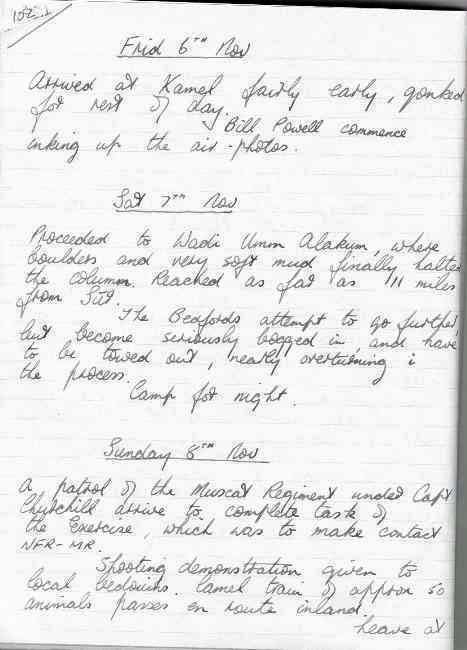 Frid 6TH Nov
Arrived at Kamel fairly early, gonked
for rest of day.
Bill Powell commence
inking up the air-photos.
Sat 7TH Nov
Proceeded to Wadi Umm Alakum, where
boulders and very soft mud finally halted
the column. Reached as far as 11 miles
from
The Bedfords attempt to go further,
but become seriously bogged in, and have
to be towed out, nearly overturning i
the process.
Camp for night.
Sunday 8TH Nov
A patrol of the Muscat Regiment under Capt
Churchill arrive to complete task of
the Exercise, which was to make contact
NFR-MR.
Shooting demonstration given to
local bedouins. Camel train of approx 50
animals passes en route inland.
Leave at